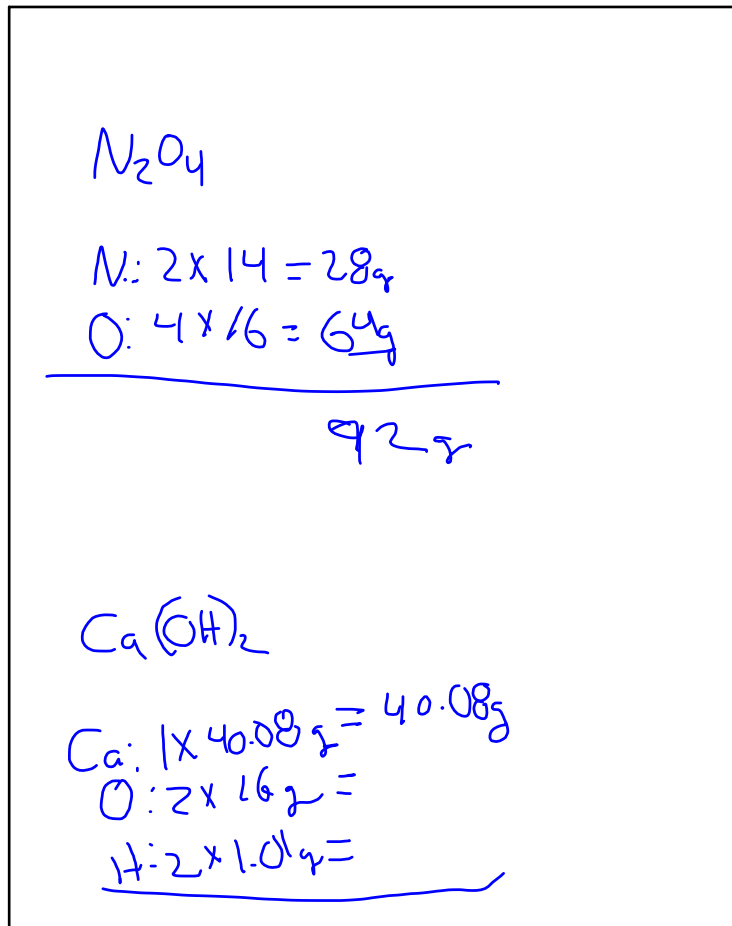 N₂O₄
N: 2 x 14 = 28g
O: 4 x 16 = 64g
92g
Ca(OH)₂
Ca: 1 x 40.08g = 40.08g
O: 2 x 16g =
H: 2 x 1.01g =